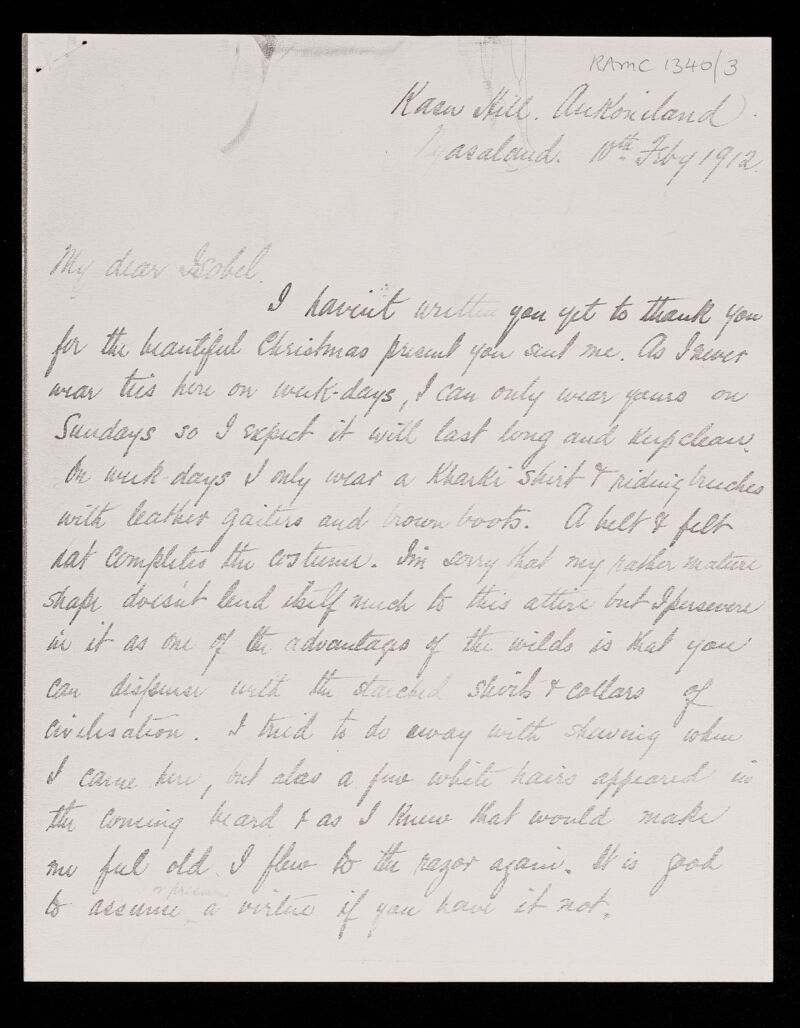 RAMC 1340/3
Kasu Hill. Ankoniland
Nyasaland. 10th Feby 1912.
My dear Isobel.
I haven't written you yet to thank you
for the beautiful Christmas present you sent me. As I never
wear ties here on week-days, I can only wear yours on
Sundays so I expect it will last long and keep clean.
On week-days I only wear a Kharki shirt & riding breeches
with leather gaiters and brown boots. A belt & felt
hat completes the costume. I'm sorry that my rather mature
shape doesn't lend itself much to this attire but I persevere
in it as one of the advantages of the wilds is that you
can dispense with the starched shirts & collars of
civilisation. I tried to do away with shaving when
I came here, but alas a few white hairs appeared in
the coming beard & as I knew that would make
me feel old I flew to the razor again. It is good
to assume a virtue if you have it not.